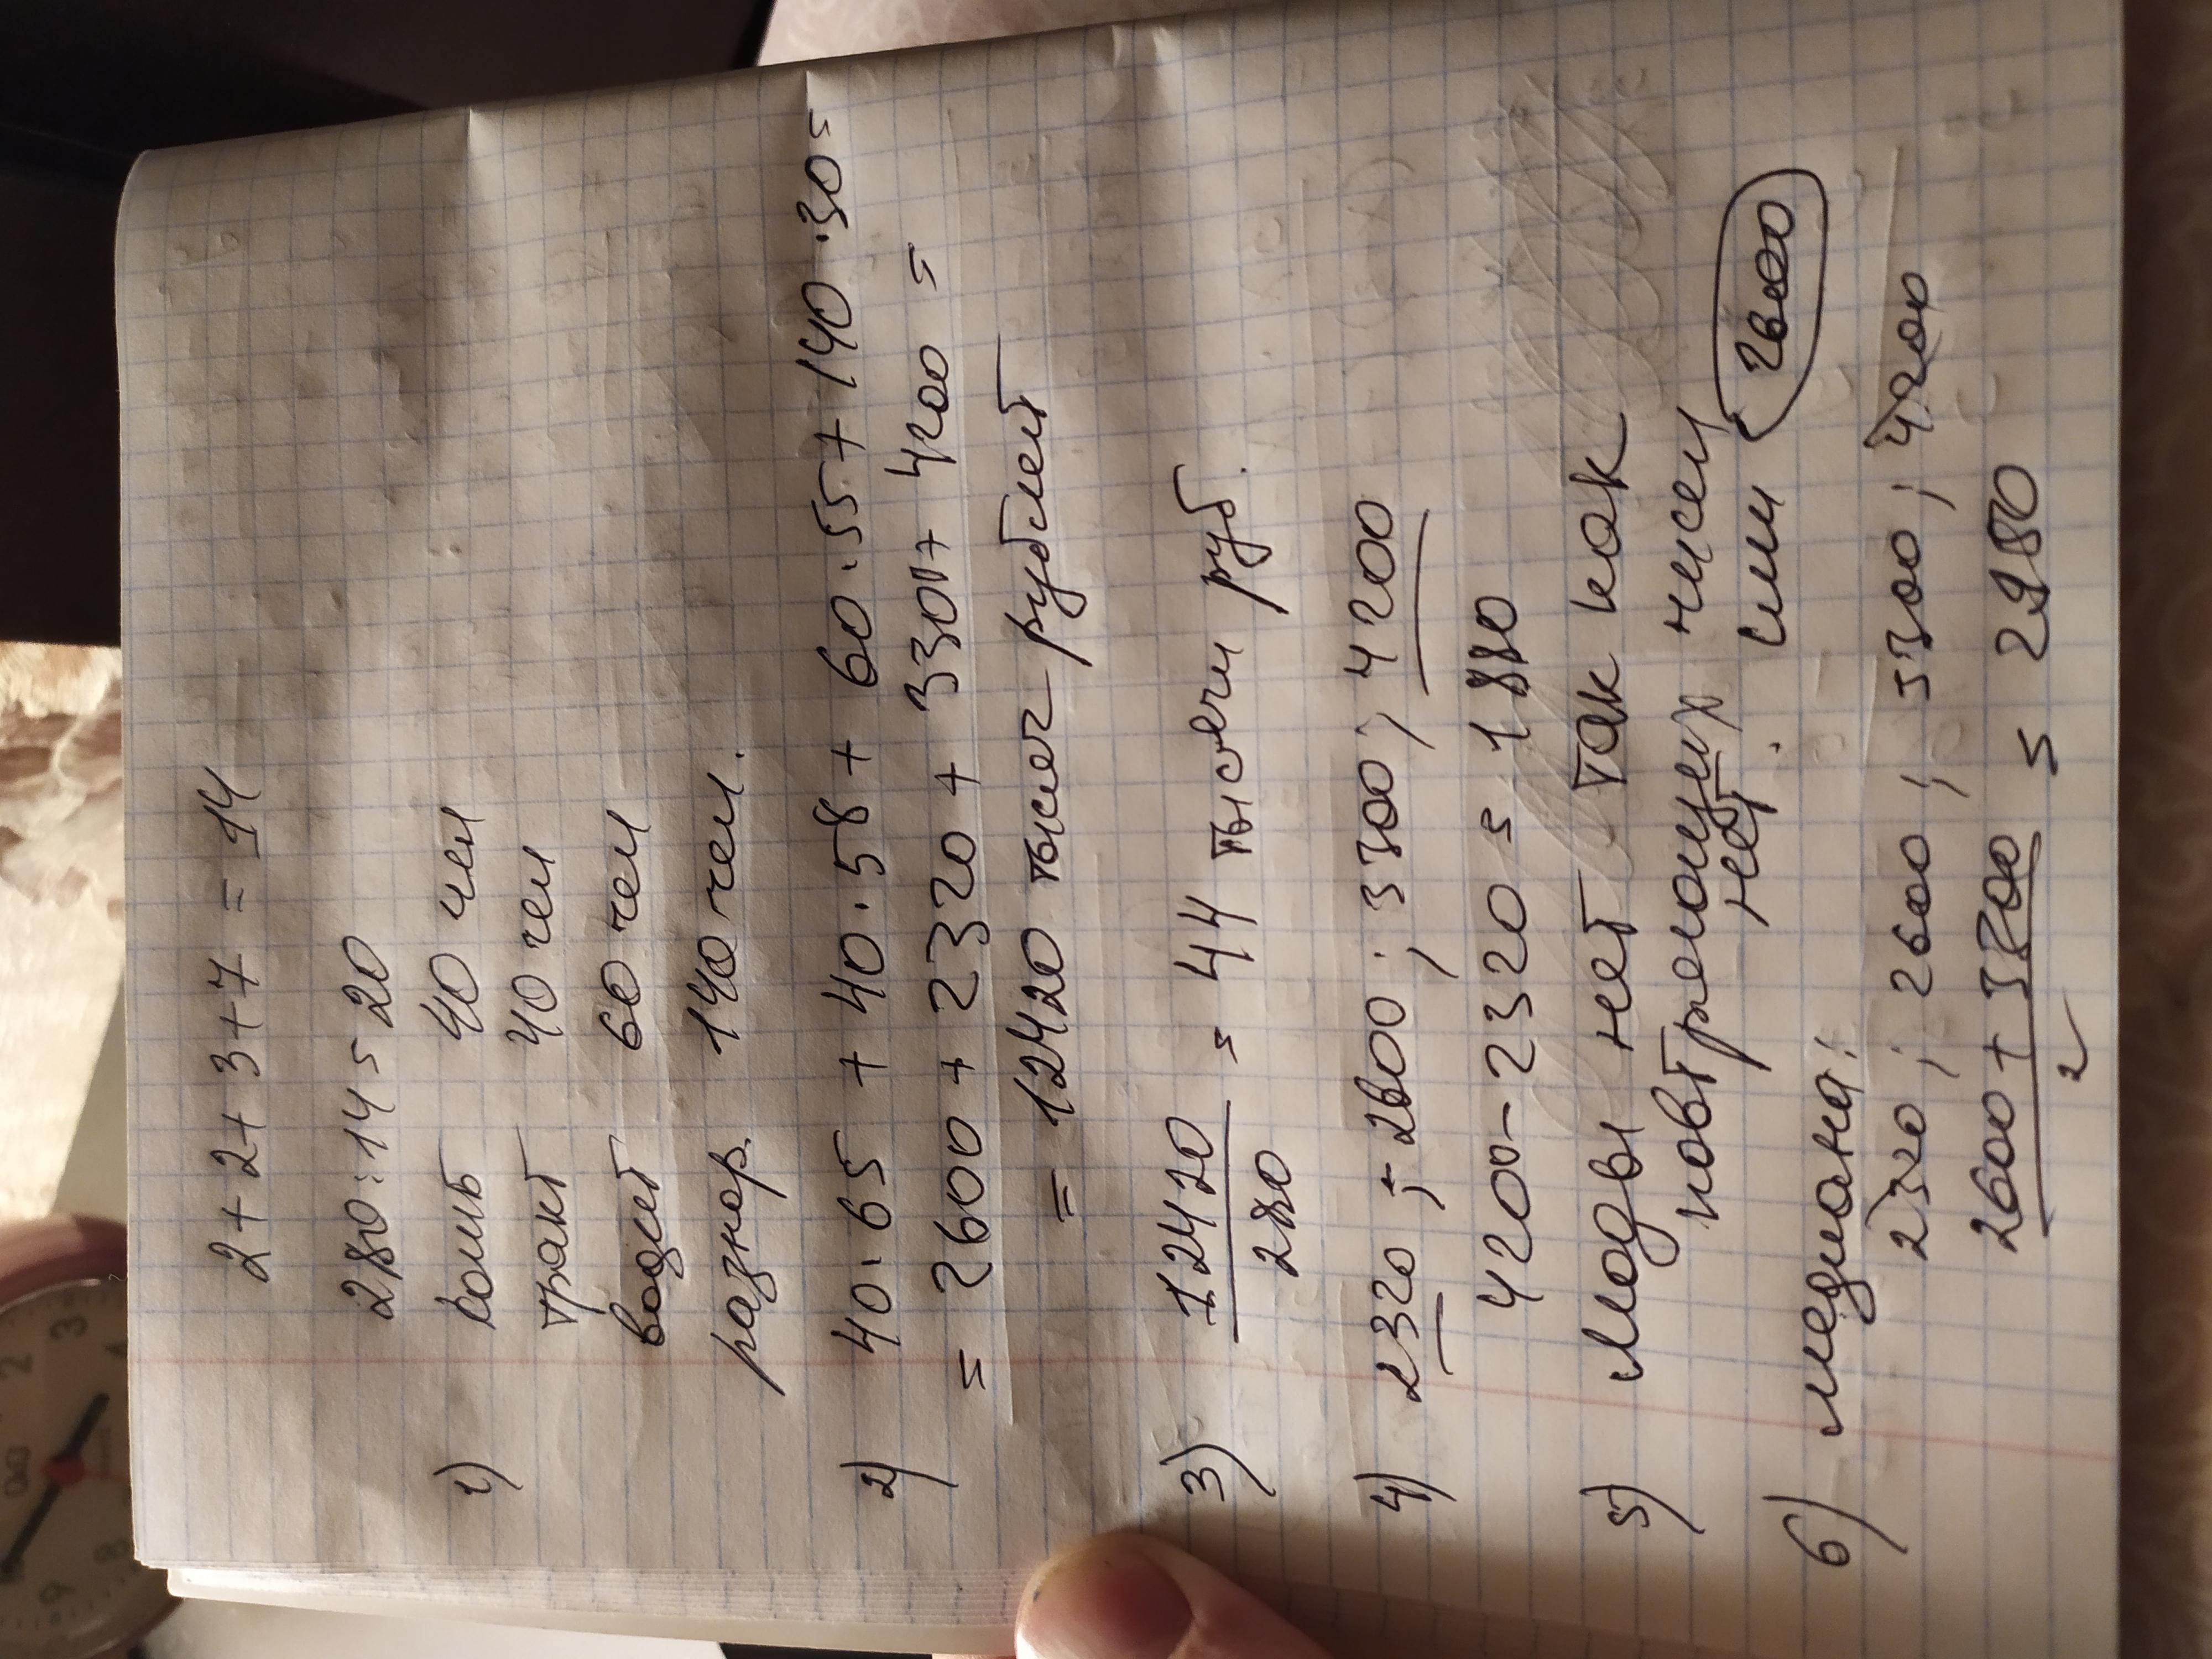 2 + 2 + 3 + 7 = 14
280 : 14 = 20
1) комб 40 чел
тракт 40 чел
водит 60 чел
разнор. 140 чел.
2) 40 · 65 + 40 · 58 + 60 · 55 + 140 · 30 =
= 2600 + 2320 + 3300 + 4200 =
= 12420 тысеч рублей
3) 12420 / 280 = 44 тысечи руб.
4) 2320 ; 2600 ; 3300 ; 4200
4200 - 2320 = 1880
5) моды нет так как
повтреющих чисел
нет. или 2600
6) медиана:
2320 ; 2600 ; 3300 ; 4200
2600 + 3300 / 2 = 2980